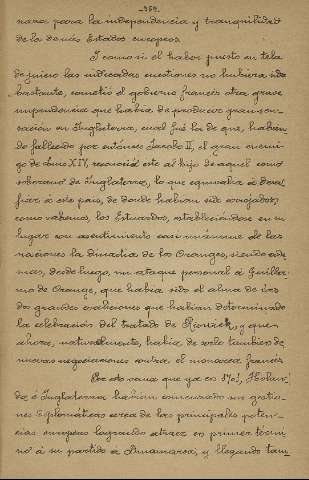 -359-
nazas para la independencia y tranquilidad
de los demás Estados europeos.
Y como si el haber puesto en tela
de juicio las indicadas cuestiones no hubiera sido
bastante, cometió el gobierno francés otra grave
imprudencia que había de producir gran sen-
sación en Inglaterra, cual fué la de que, habien-
do fallecido por entónces Jacobo II, el gran enemi-
go de Luis XIV, reconoció este al hijo de aquel como
soberano de Inglaterra, lo que equivalía á desa-
fiar á este pais, de donde habían sido arrojados,
como sabemos, los Estuardos, estableciéndose en su
lugar con asentimiento casi unánime de las
naciones la dinastía de los Oranges, siendo ade
mas, desde luego, un ataque personal á Guiller-
mo de Orange, que había sido el alma de las
dos grandes coaliciones que habían determinado
la celebración del tratado de Riswick, y que
ahora, naturalmente, había de serlo tambien de
nuevas negociaciones contra el monarca francés.
Por esto vemos que ya en 1701, Holan-
da é Inglaterra habían comenzado sus gestio-
nes diplomáticas cerca de las principales poten-
cias europeas logrando atraer en primer térmi-
no á su partido á Dinamarca, y llegando tam-